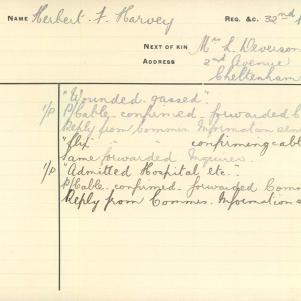 NAME Herbert F. Harvey REG. &C. 32nd
NEXT OF KIN Mrs L. Deverson
ADDRESS 2nd Avenue
Cheltenham
"Wounded-gassed"
1/P P/Cable-confirmed-forwarded C
Reply from Commrs. Information sen
" " confirming cable
Same forwarded Inquirer.
1/P "Admitted Hospital etc."
P/Cable-confirmed-forwarded Comm
Reply from Commrs. Information s